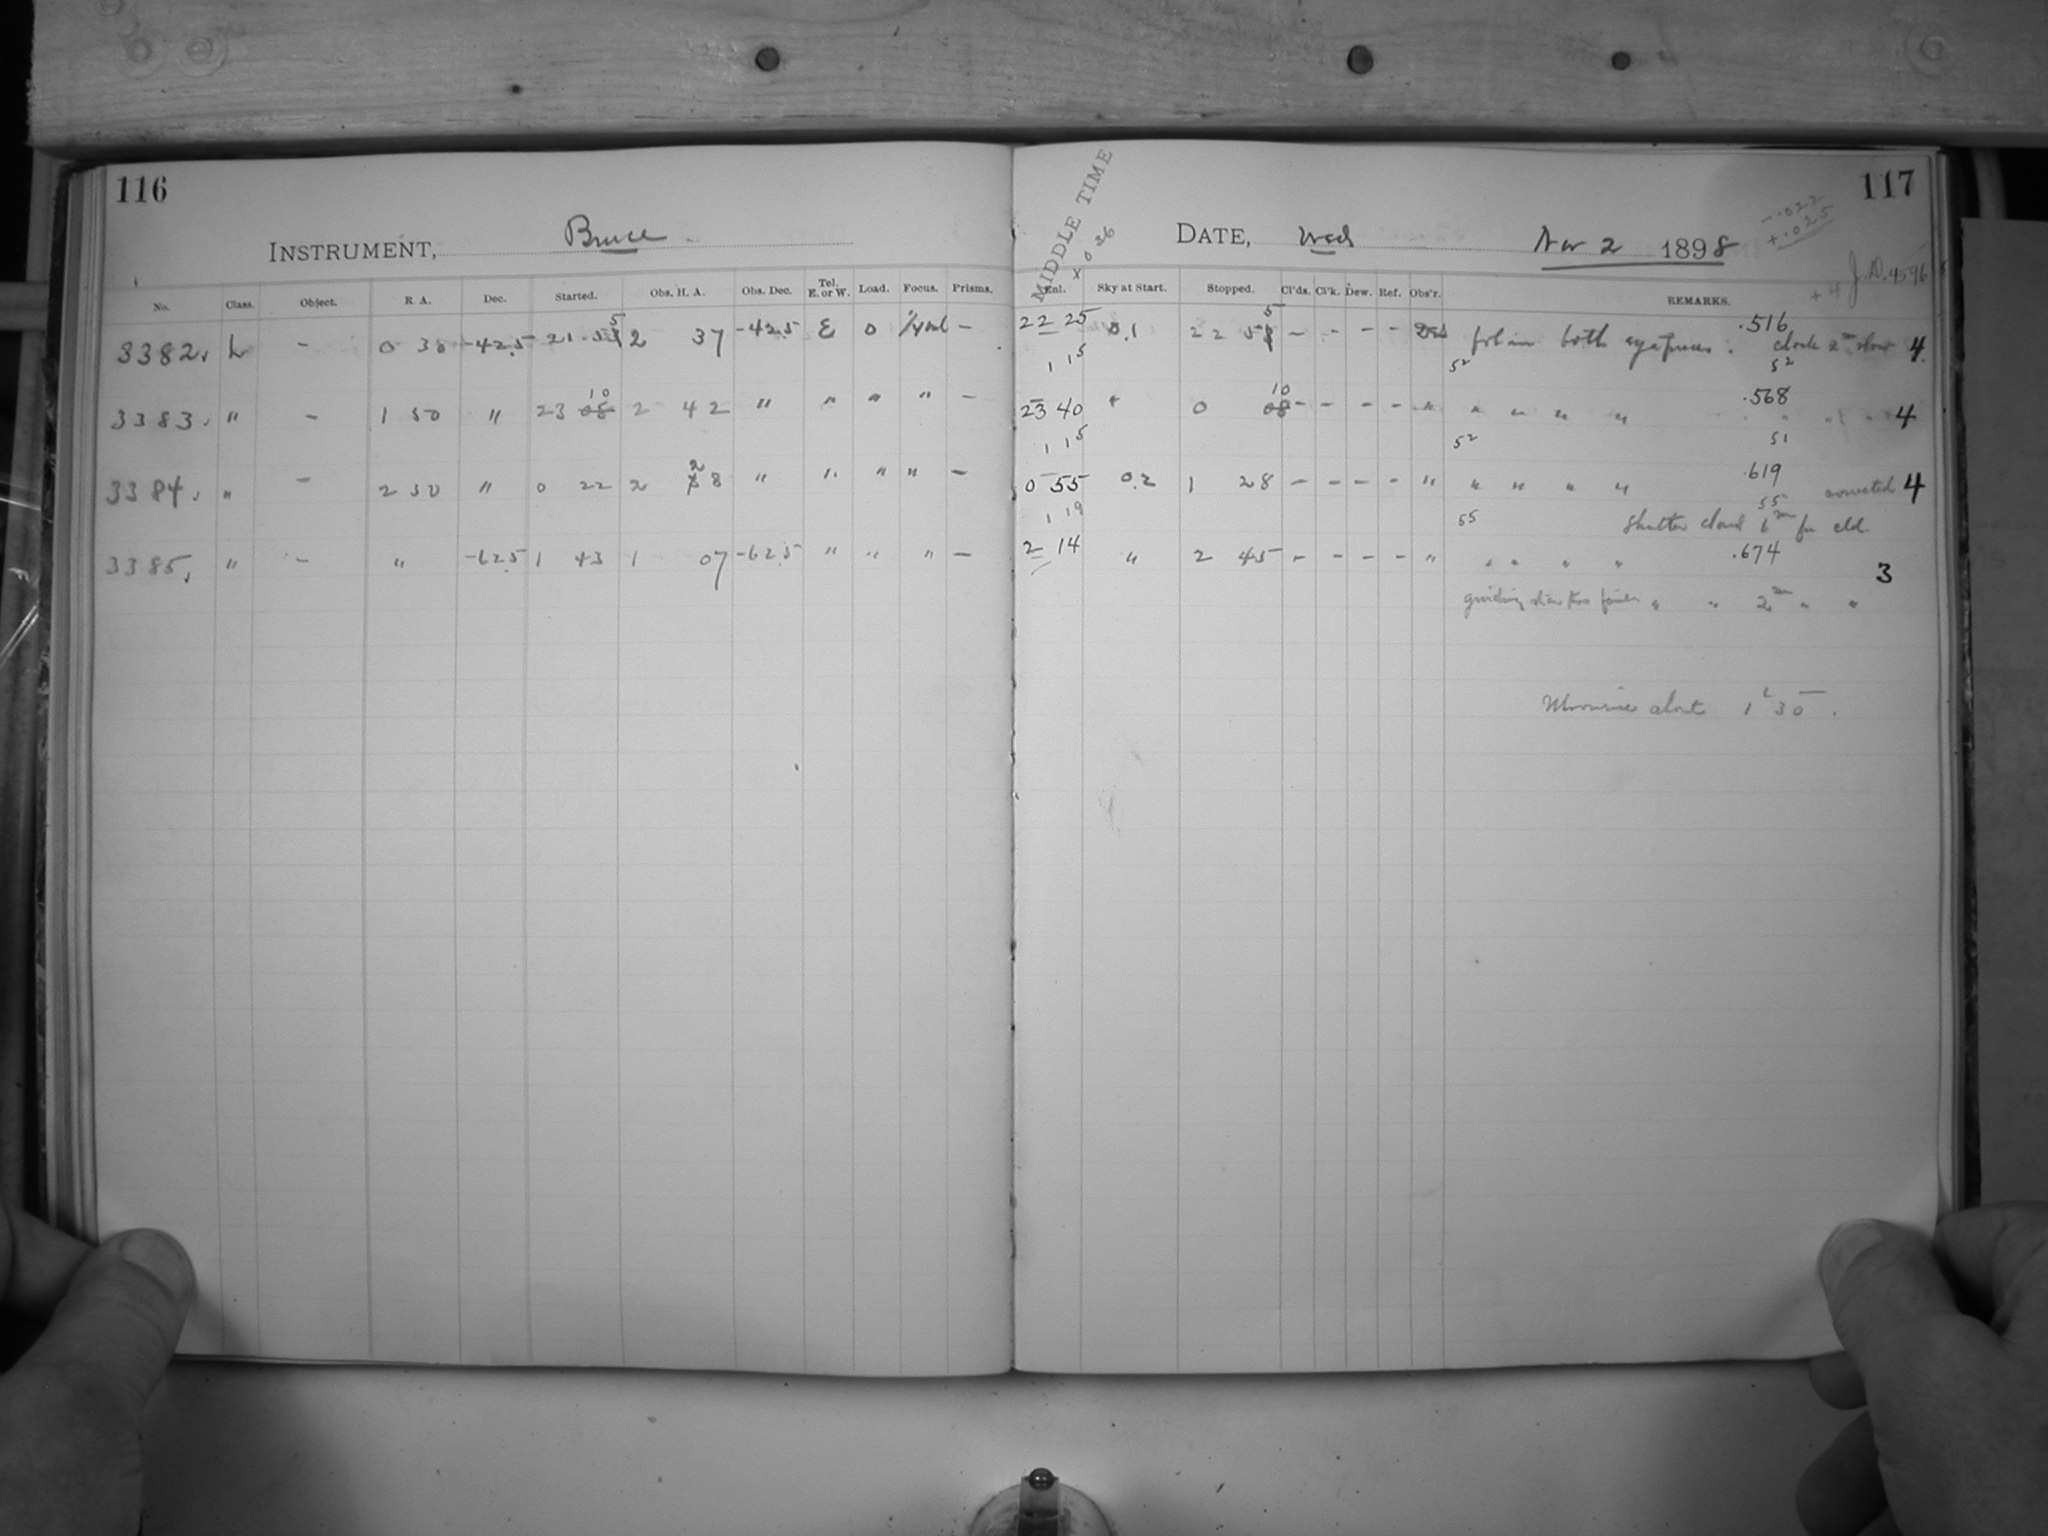 116
INSTRUMENT, Bruce
No. Class. Object. R A. Dec. Started. Obs. H. A. Obs. Dec. Tel. E. or W. Load. Focus. Prisms.
3382. L - 0 30 -42.5 21 55 2 37 -42.5 E 0 -
10
3383. " - 1 50 " 23 08 2 42 " " " " -
2
3384. " - 2 50 " 0 22 2 8 " " " " -
3385. " - " -62.5 1 43 1 07 -62.5 " " " -
117
MIDDLE TIME
× 0 36
DATE, Wed Nov 2 1898
-.022
+.025
J.D. 4596
+ 4
Enl. Sky at Start. Stopped. Cl'ds. Cl'k. Dew. Ref. Obs'r. REMARKS.
22 25 0.1 22 55 - - - - both eyepieces. .516 clock 2m slow 4
1 15 52 52
10
23 40 " 0 08 - - - - " " " " " .568 " " " 4
1 15 52 51
0 55 0.2 1 28 - - - - " " " " " .619 corrected 4
1 19 55 55
shutter closed 6m for cld.
2 14 " 2 45 - - - - " " " " " .674 3
guiding star too faint " " 2m " "
Moonrise about 1h 30